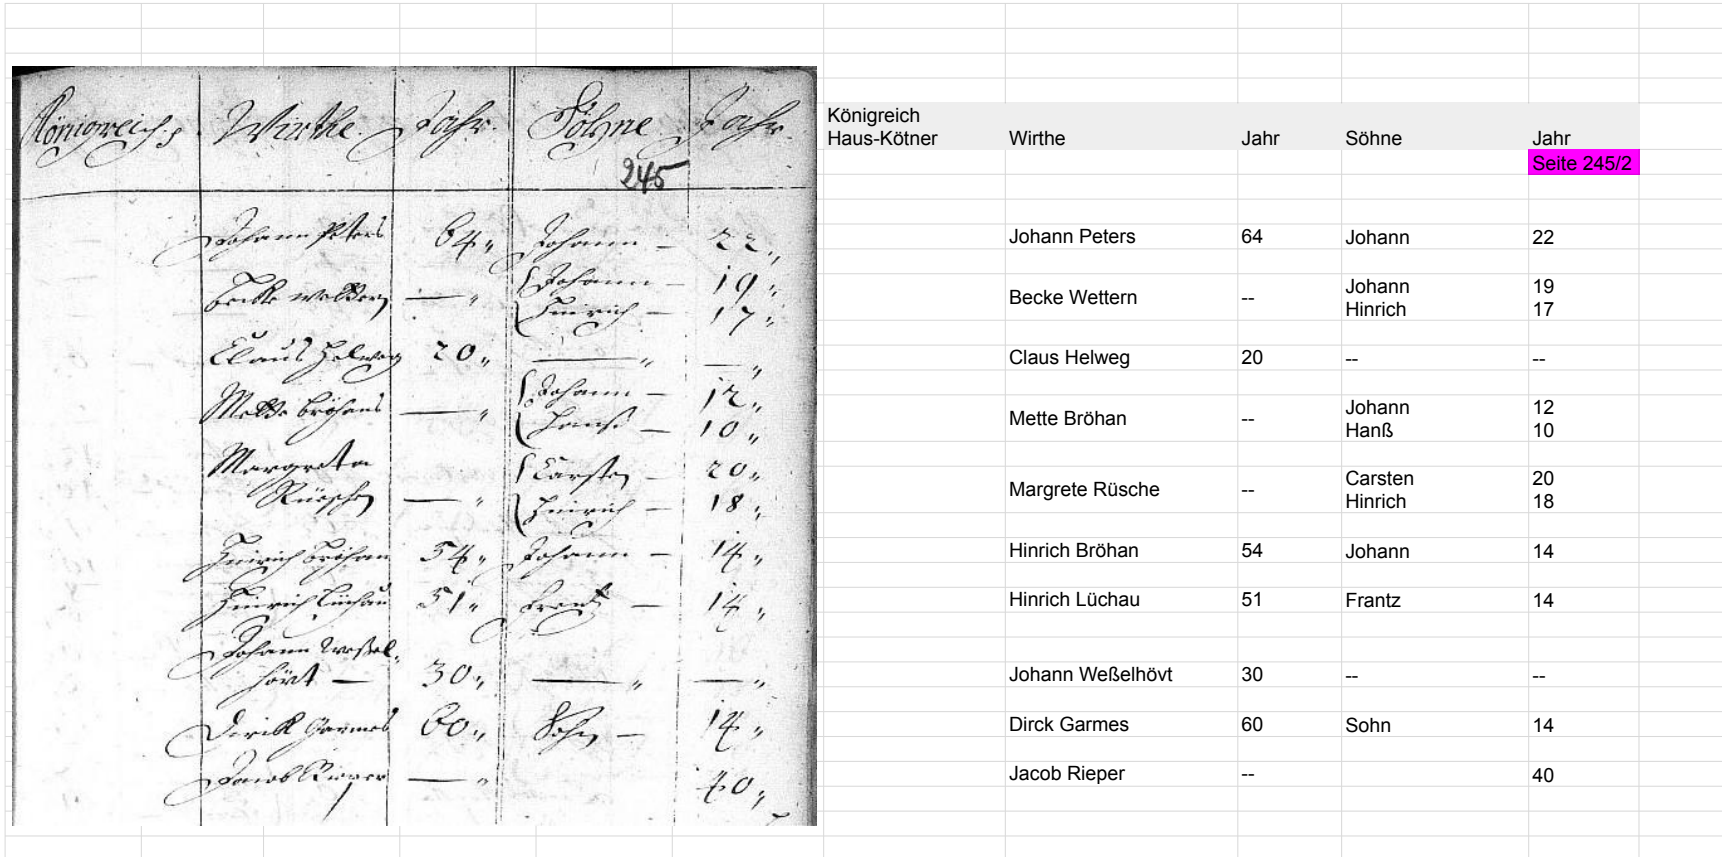 Königreich. Wirthe. Jahr. Söhne Jahr.
245
Johann Peters 64 Johann — 22
Becke Wettern — Johann — 19
Hinrich — 17
Claus Helweg 20 — —
Mette Bröhans — Johann — 12
Hanß — 10
Margreta Carsten 20
Rüschen — Hinrich — 18
Hinrich Bröhan 54 Johann — 14
Hinrich Lüchau 51 Frantz — 14
Johann Weßel-
hövt — 30 — —
Dirck Garmes 60 Sohn — 14
Jacob Rieper — 40
Königreich
Haus-Kötner Wirthe Jahr Söhne Jahr
Seite 245/2
Johann Peters 64 Johann 22
Becke Wettern -- Johann 19
Hinrich 17
Claus Helweg 20 -- --
Mette Bröhan -- Johann 12
Hanß 10
Margrete Rüsche -- Carsten 20
Hinrich 18
Hinrich Bröhan 54 Johann 14
Hinrich Lüchau 51 Frantz 14
Johann Weßelhövt 30 -- --
Dirck Garmes 60 Sohn 14
Jacob Rieper -- 40